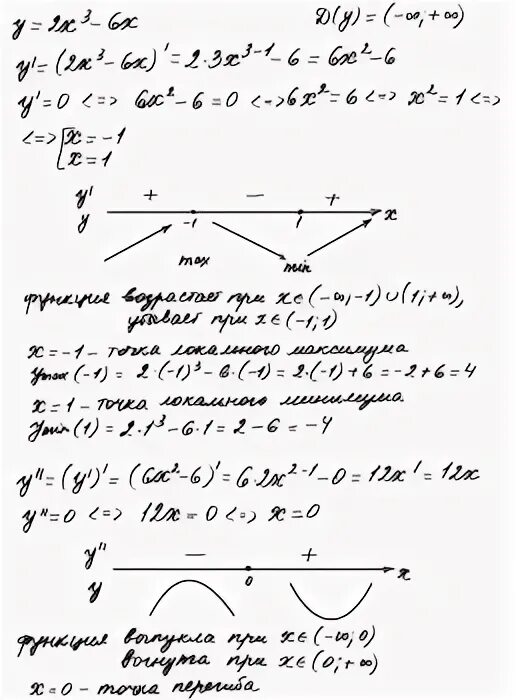 y = 2x³ - 6x D(y) = (-∞; +∞)
y' = (2x³ - 6x)' = 2·3x³⁻¹ - 6 = 6x² - 6
y' = 0 <=> 6x² - 6 = 0 <=> 6x² = 6 <=> x² = 1 <=>
<=> [x = -1
[x = 1
y' + - +
y -1 1 x
max min
функция возрастает при x∈(-∞,-1)∪(1;+∞),
убывает при x∈(-1;1)
x = -1 - точка локального максимума
ymax(-1) = 2·(-1)³ - 6·(-1) = 2·(-1)+6 = -2+6 = 4
x = 1 - точка локального минимума
ymin(1) = 2·1³ - 6·1 = 2 - 6 = -4
y'' = (y')' = (6x² - 6)' = 6·2x²⁻¹ - 0 = 12x¹ = 12x
y'' = 0 <=> 12x = 0 <=> x = 0
y'' - +
y 0 x
функция выпукла при x∈(-∞;0)
вогнута при x∈(0;+∞)
x = 0 - точка перегиба